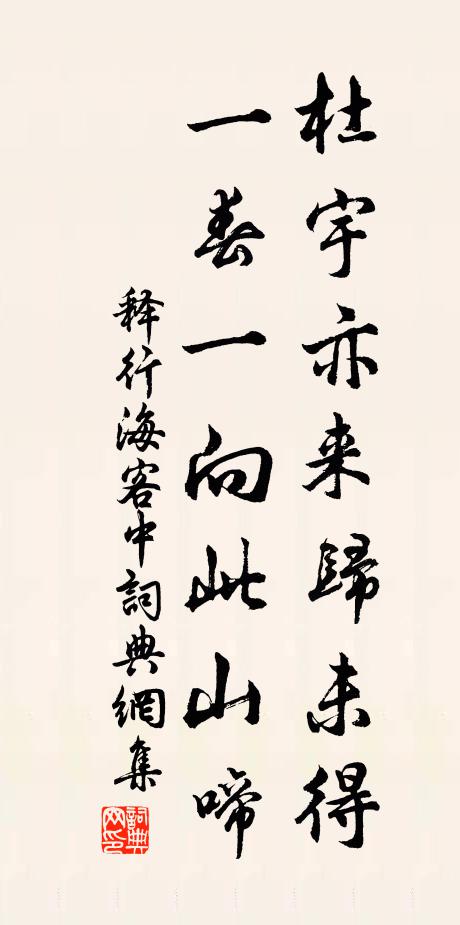 杜宇亦来歸未得
一春一向此山啼
释行海客中詞典網集
詞典网印